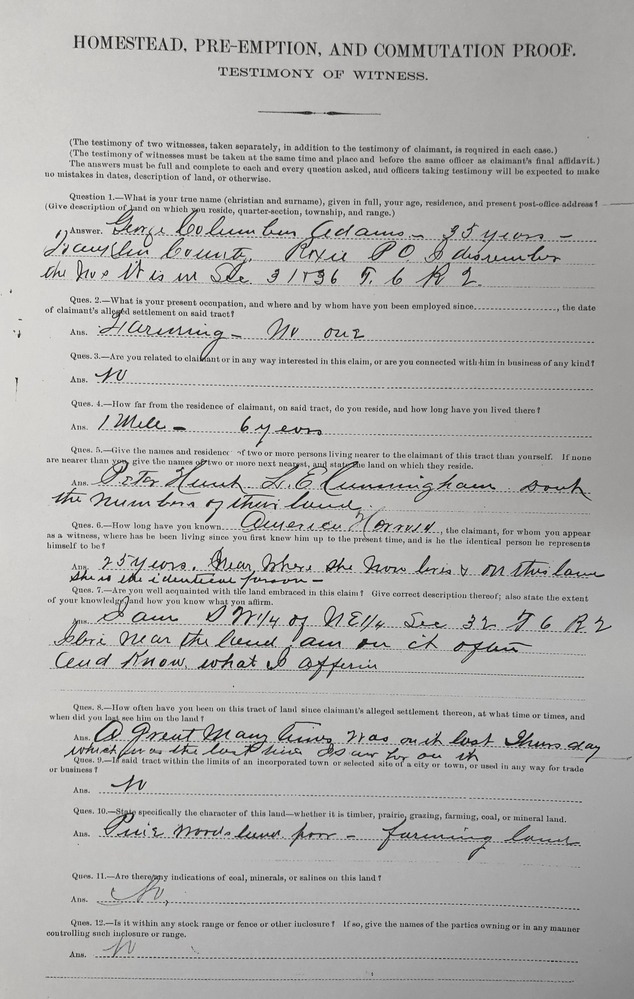 HOMESTEAD, PRE-EMPTION, AND COMMUTATION PROOF.
TESTIMONY OF WITNESS.
(The testimony of two witnesses, taken separately, in addition to the testimony of claimant, is required in each case.)
(The testimony of witnesses must be taken at the same time and place and before the same officer as claimant's final affidavit.)
The answers must be full and complete to each and every question asked, and officers taking testimony will be expected to make
no mistakes in dates, description of land, or otherwise.
Question 1.—What is your true name (christian and surname), given in full, your age, residence, and present post-office address?
(Give description of land on which you reside, quarter-section, township, and range.)
Answer. George Columbus Adams - 35 years -
Franklin County, Roxie P.O. I disremember
the Nos It is in Sec 31 & 36 T. 6 R 2
Ques. 2.—What is your present occupation, and where and by whom have you been employed since, the date
of claimant's alleged settlement on said tract?
Ans. Farming - No one
Ques. 3.—Are you related to claimant or in any way interested in this claim, or are you connected with him in business of any kind?
Ans. No
Ques. 4.—How far from the residence of claimant, on said tract, do you reside, and how long have you lived there?
Ans. 1 Mile - 6 years
Ques. 5.—Give the names and residence of two or more persons living nearer to the claimant of this tract than yourself. If none
are nearer than you, give the names of two or more next nearest, and state the land on which they reside.
Ans. Peter Hunt L. E. Cunningham dont
the numbers of their land.
Ques. 6.—How long have you known America, the claimant, for whom you appear
as a witness, where has he been living since you first knew him up to the present time, and is he the identical person he represents
himself to be?
Ans. 25 Years. Near where she now lives & on this land
She is the identical person -
Ques. 7.—Are you well acquainted with the land embraced in this claim? Give correct description thereof; also state the extent
of your knowledge, and how you know what you affirm.
Ans. I am SW1/4 of NE1/4 Sec 32 T 6 R 2
I live near the land am on it often
and Know what I affirm
Ques. 8.—How often have you been on this tract of land since claimant's alleged settlement thereon, at what time or times, and
when did you last see him on the land?
Ans. A Great Many times Was on it last Thursday
which was the last time I saw her on it
Ques. 9.—Is said tract within the limits of an incorporated town or selected site of a city or town, or used in any way for trade
or business?
Ans. No
Ques. 10.—State specifically the character of this land—whether it is timber, prairie, grazing, farming, coal, or mineral land.
Ans. Pine woods land poor - farming land
Ques. 11.—Are there any indications of coal, minerals, or salines on this land?
Ans. No,
Ques. 12.—Is it within any stock range or fence or other inclosure? If so, give the names of the parties owning or in any manner
controlling such inclosure or range.
Ans. No